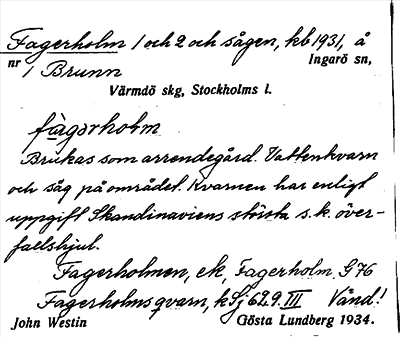 Fagerholm 1 och 2 och sågen, kb 1931, å
nr 1 Brunn Ingarö sn,
Värmdö skg, Stockholms l.
fàgərholm
Brukas som arrendegård. Vattenkvarn
och såg på området. Kvarnen har enligt
uppgift Skandinaviens största s.k. över-
fallshjul.
Fagerholmen, ek, Fagerholm. G 76
Fagerholms qvarn, k Sj 62 9. III Vänd!
John Westin Gösta Lundberg 1934.